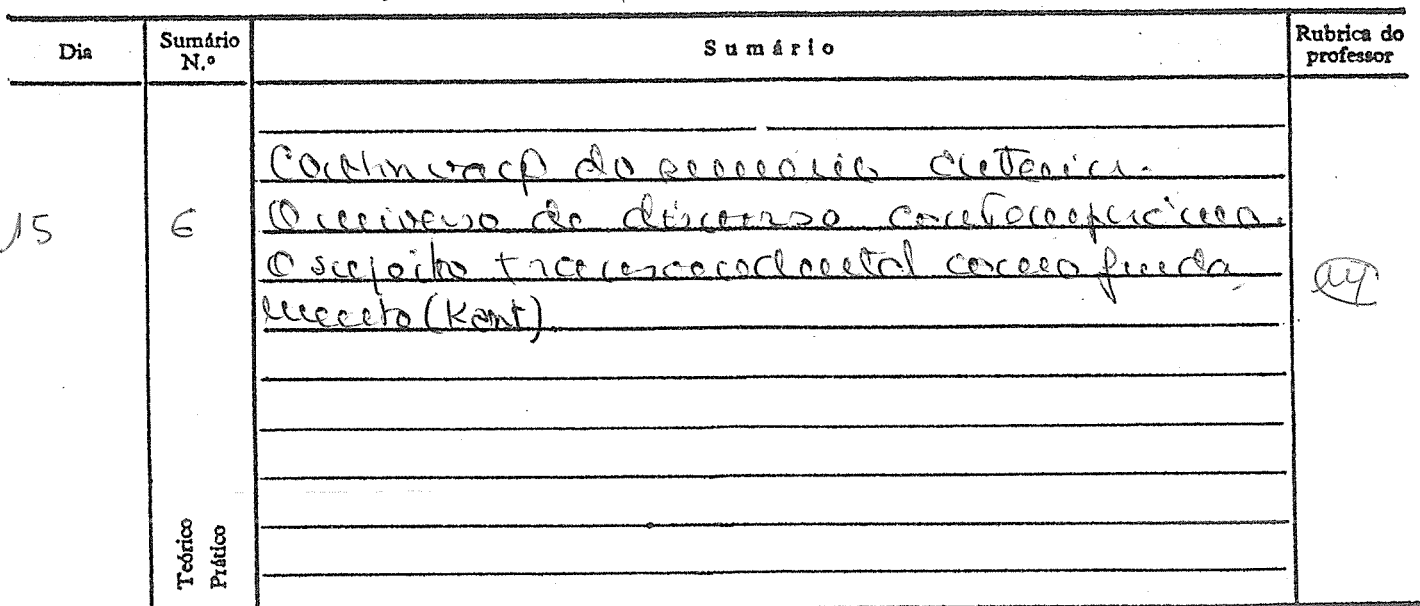 Dia Sumário N.º Sumário Rubrica do professor
Continuação do sumário anterior.
15 6 O universo do discurso contemporâneo.
O sujeito transcendental como funda
mento (Kant).
Teórico
Prático